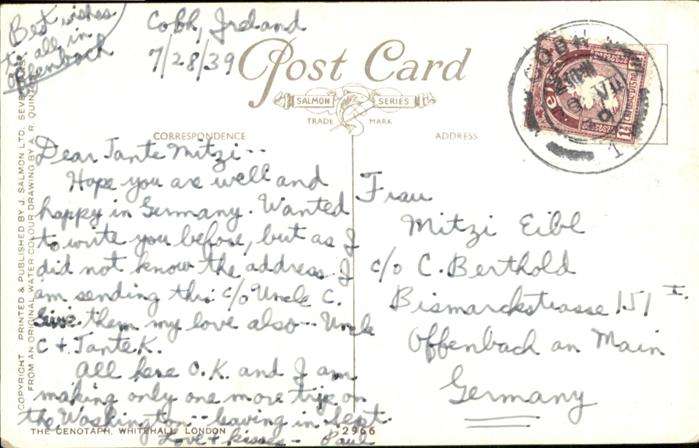 Best wishes
to all in
Offenbach
Cobh, Ireland
7/28/39
Post Card
SALMON SERIES
TRADE MARK
CORRESPONDENCE
ADDRESS
Dear Tante Mitzi --
Hope you are well and
happy in Germany. Wanted
to write you before, but as I
did not know the address I
am sending this c/o Uncle C.
Give them my love also -- Uncle
C + Tante K.
All here O.K. and I am
making only one more trip on
the Washington -- leaving in Sept
Love + kisses - Paul
Frau
Mitzi Eibl
c/o C. Berthold
Bismarckstrasse 151 I.
Offenbach am Main
Germany
THE CENOTAPH, WHITEHALL, LONDON
2966
COPYRIGHT PRINTED & PUBLISHED BY J. SALMON LTD. SEV
FROM AN ORIGINAL WATER COLOUR DRAWING BY A. R. QUIN